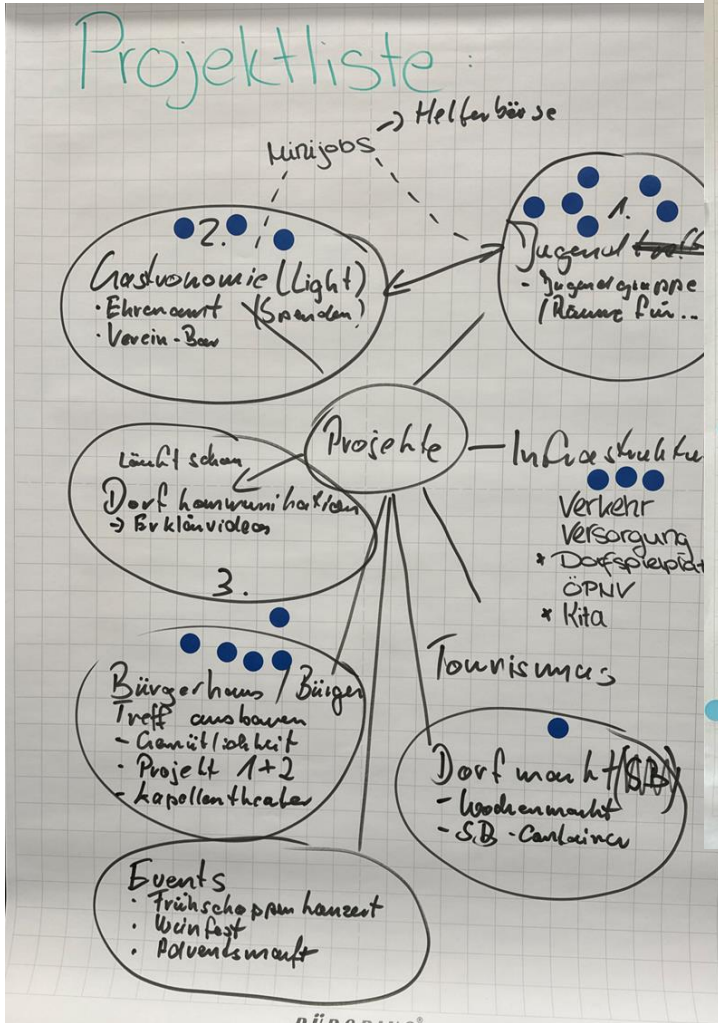 Projektliste:
-> Helferbörse
Minijobs
2.
Gastronomie (Light)
· Ehrenamt (Spenden?)
· Verein-Bar
1.
Jugend
- Jugendgruppe
/ Räume für...
Projekte
Läuft schon
Dorfkommunikation
-> Erklärvideos
3.
Infrastruktur
Verkehr
Versorgung
* Dorfspielplat
ÖPNV
* Kita
Bürgerhaus / Bürger
Treff ausbauen
- Gemütlichkeit
· Projekt 1+2
- Kapellentheater
Tourismus
Dorfmarkt (SB)
- Wochenmarkt
- SB-Container
Events
· Frühschoppenkonzert
· Weinfest
· Adventsmarkt